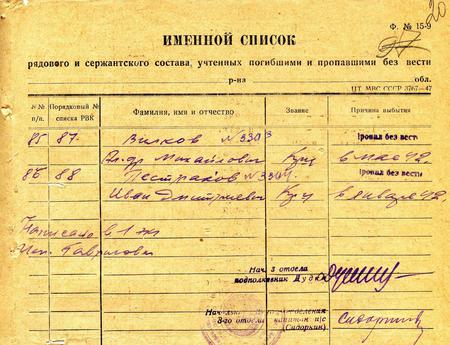 Ф. № 15-9
20
97
ИМЕННОЙ СПИСОК
рядового и сержантского состава, учтенных погибшими и пропавшими без вести
р-на обл.
ЦТ МВС СССР 3767—47
№№ п/п. Порядковый № списка РВК Фамилия, имя и отчество Звание Причина выбытия
85 87. Вилков № 3303 Пропал без вести
Ал-др Михайлович Кр-ц в мае 42
86 88 Пестраков № 3304 Пропал без вести
Иван Дмитриевич Кр-ц в январе 42.
Написано в 1 эк
Исп. Гаврилович
Нач. 3 отдела
подполковник Дудка
отделения
3-го отдела капитан и/с
(Сидоркин)